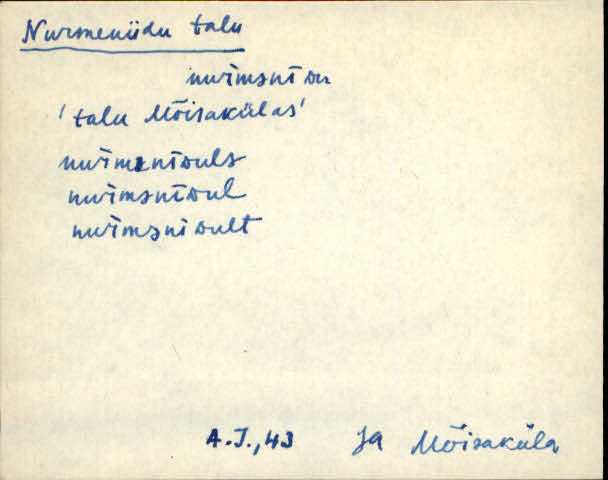 Nurmeniidu talu
nurmɘnīᴅu
'talu Mõisakülas'
nurmɘnīᴅulɘ
nurmɘnīᴅul
nurmɘnīᴅult
A.J., 43 Ja Mõisaküla